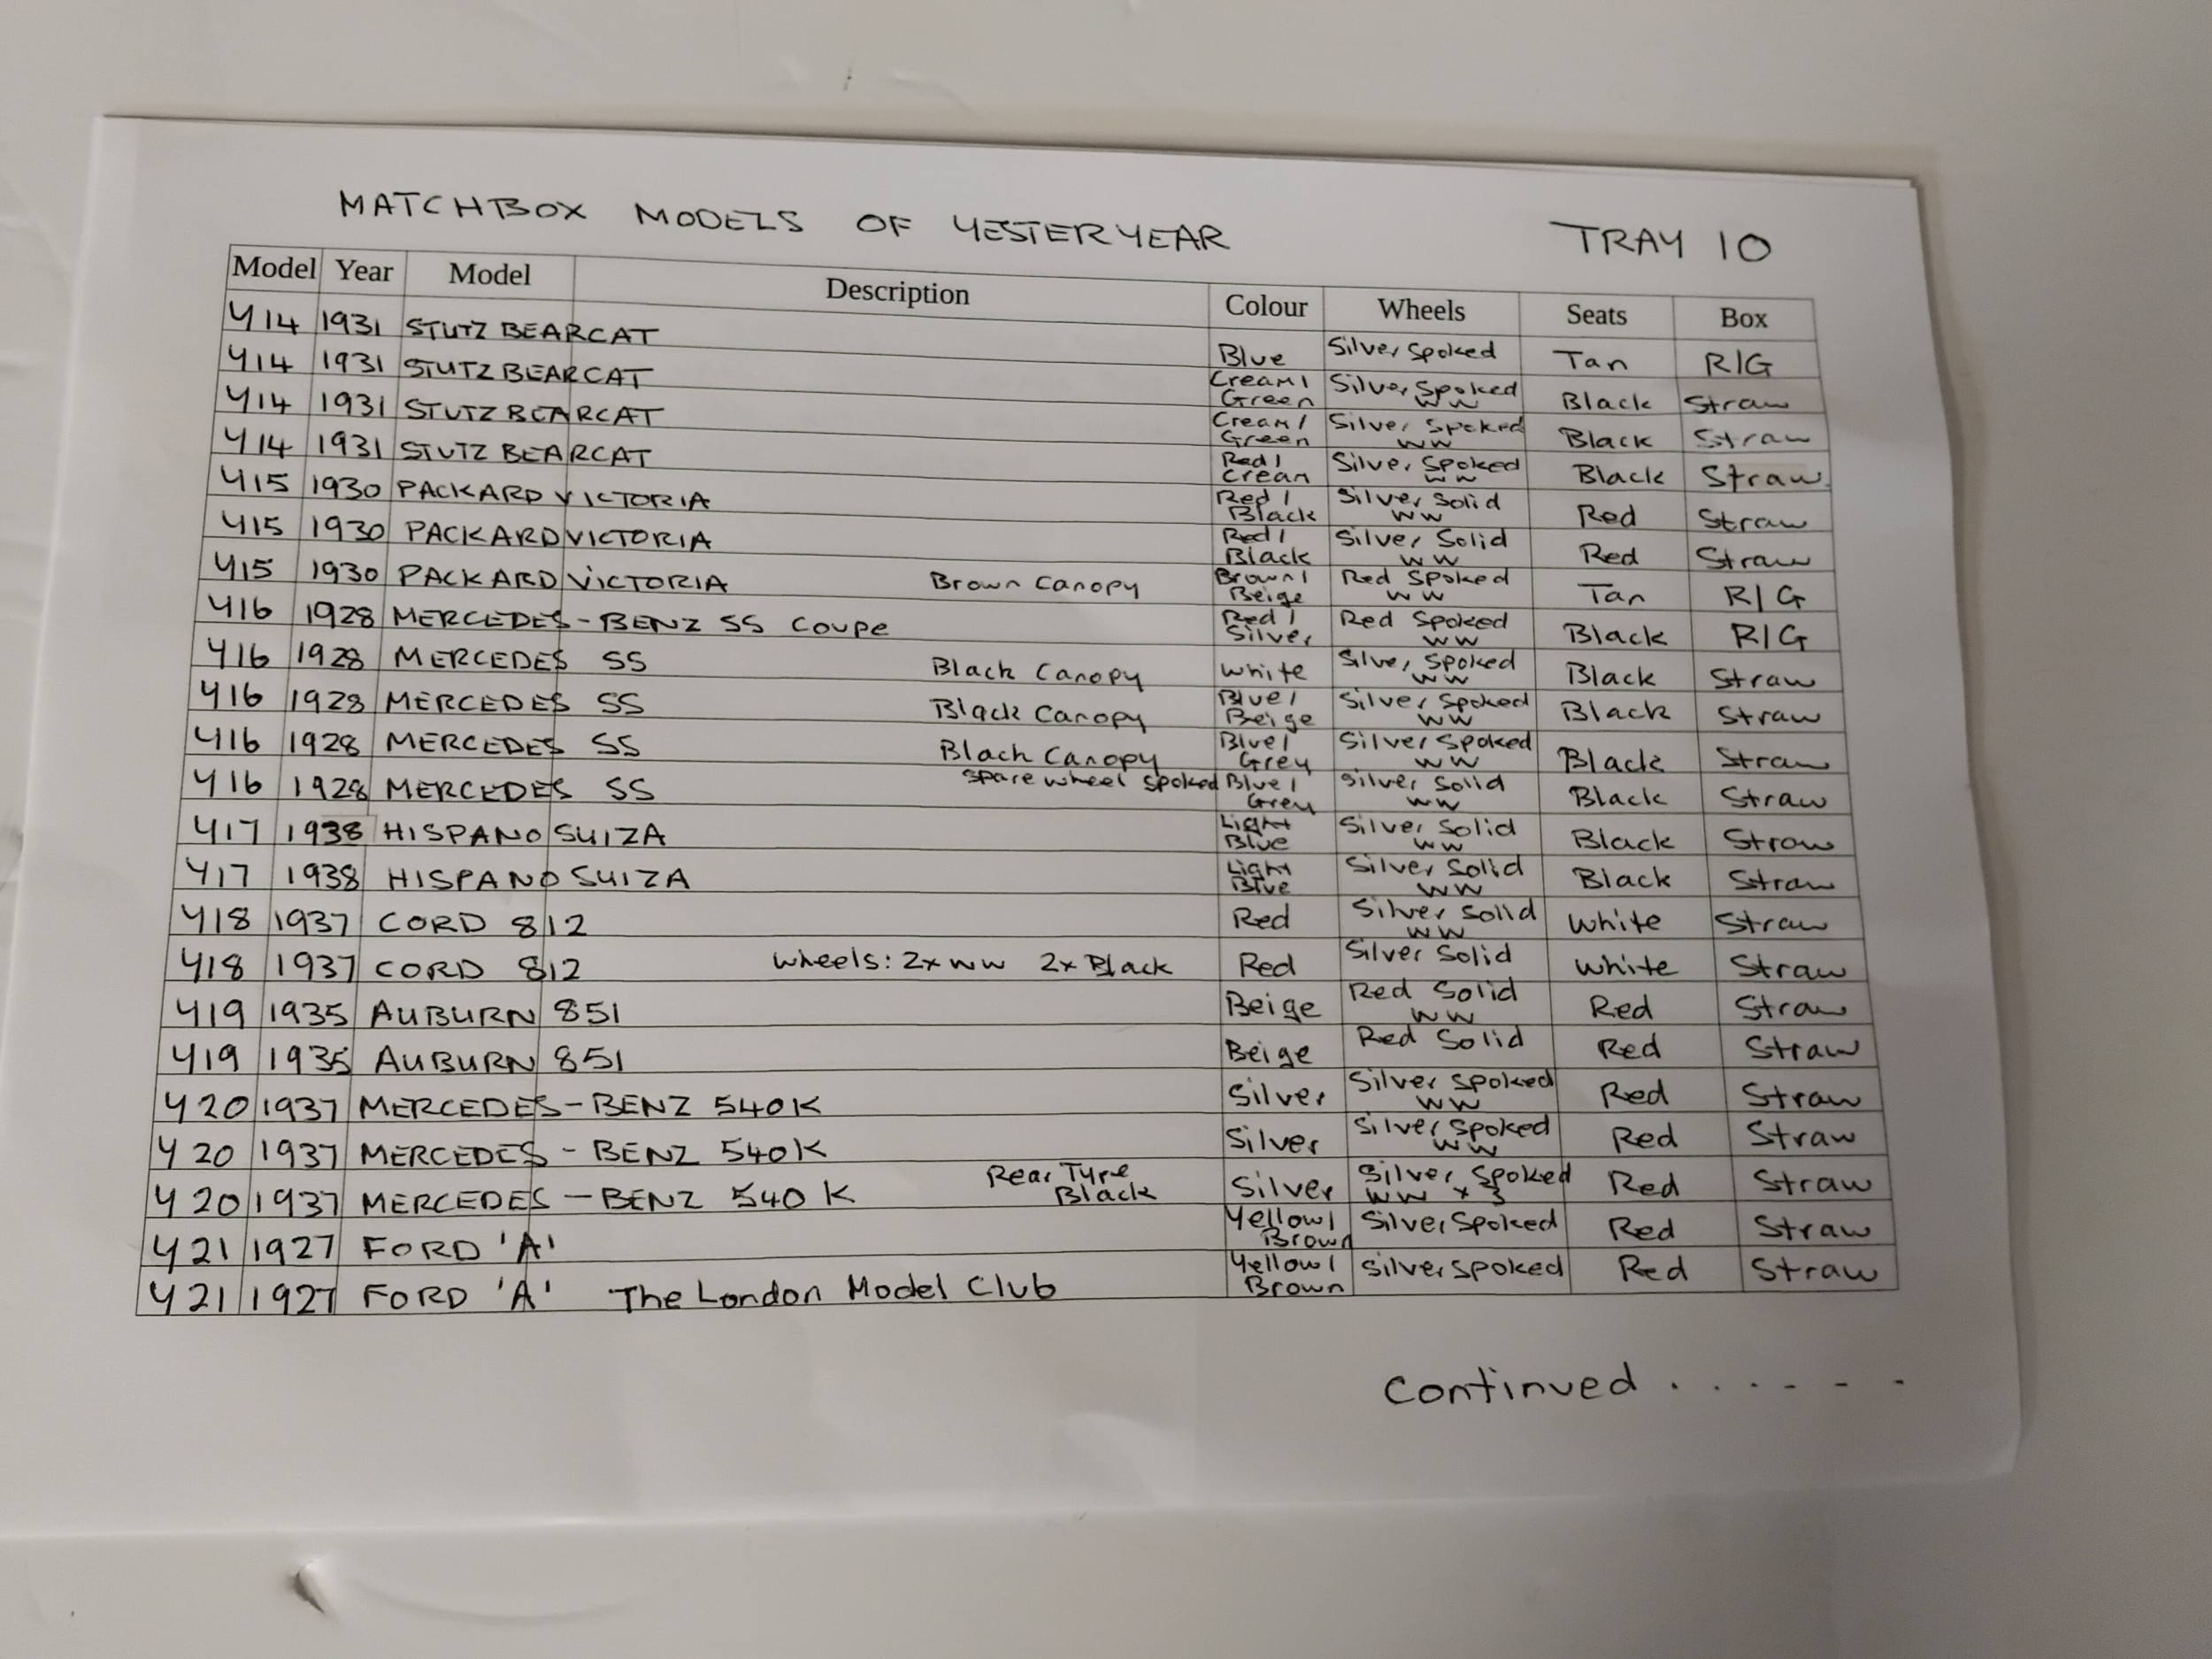 MATCHBOX MODELS OF YESTERYEAR TRAY 10
Model Year Model Description Colour Wheels Seats Box
Y14 1931 STUTZ BEARCAT Blue Silver Spoked Tan R/G
Y14 1931 STUTZ BEARCAT Cream/ Green Silver Spoked WW Black Straw
Y14 1931 STUTZ BEARCAT Cream/ Green Silver Spoked WW Black Straw
Y14 1931 STUTZ BEARCAT Red/ Cream Silver Spoked WW Black Straw
Y15 1930 PACKARD VICTORIA Red/ Black Silver Solid WW Red Straw
Y15 1930 PACKARD VICTORIA Red/ Black Silver Solid WW Red Straw
Y15 1930 PACKARD VICTORIA Brown Canopy Brown/ Beige Red Spoked WW Tan R/G
Y16 1928 MERCEDES-BENZ SS Coupe Red/ Silver Red Spoked WW Black R/G
Y16 1928 MERCEDES SS Black Canopy White Silver Spoked WW Black Straw
Y16 1928 MERCEDES SS Black Canopy Blue/ Beige Silver Spoked WW Black Straw
Y16 1928 MERCEDES SS Black Canopy Blue/ Grey Silver Spoked WW Black Straw
Y16 1928 MERCEDES SS Spare wheel spoked Blue/ Grey Silver Solid WW Black Straw
Y17 1938 HISPANO SUIZA Light Blue Silver Solid WW Black Straw
Y17 1938 HISPANO SUIZA Light Blue Silver Solid WW Black Straw
Y18 1937 CORD 812 Red Silver Solid WW White Straw
Y18 1937 CORD 812 Wheels: 2x WW 2x Black Red Silver Solid White Straw
Y19 1935 AUBURN 851 Beige Red Solid WW Red Straw
Y19 1935 AUBURN 851 Beige Red Solid Red Straw
Y20 1937 MERCEDES-BENZ 540K Silver Silver Spoked WW Red Straw
Y20 1937 MERCEDES-BENZ 540K Silver Silver Spoked WW Red Straw
Y20 1937 MERCEDES-BENZ 540K Rear Tyre Black Silver Silver Spoked WW x 3 Red Straw
Y21 1927 FORD 'A' Yellow/ Brown Silver Spoked Red Straw
Y21 1927 FORD 'A' The London Model Club Yellow/ Brown Silver Spoked Red Straw
Continued . . . . . .